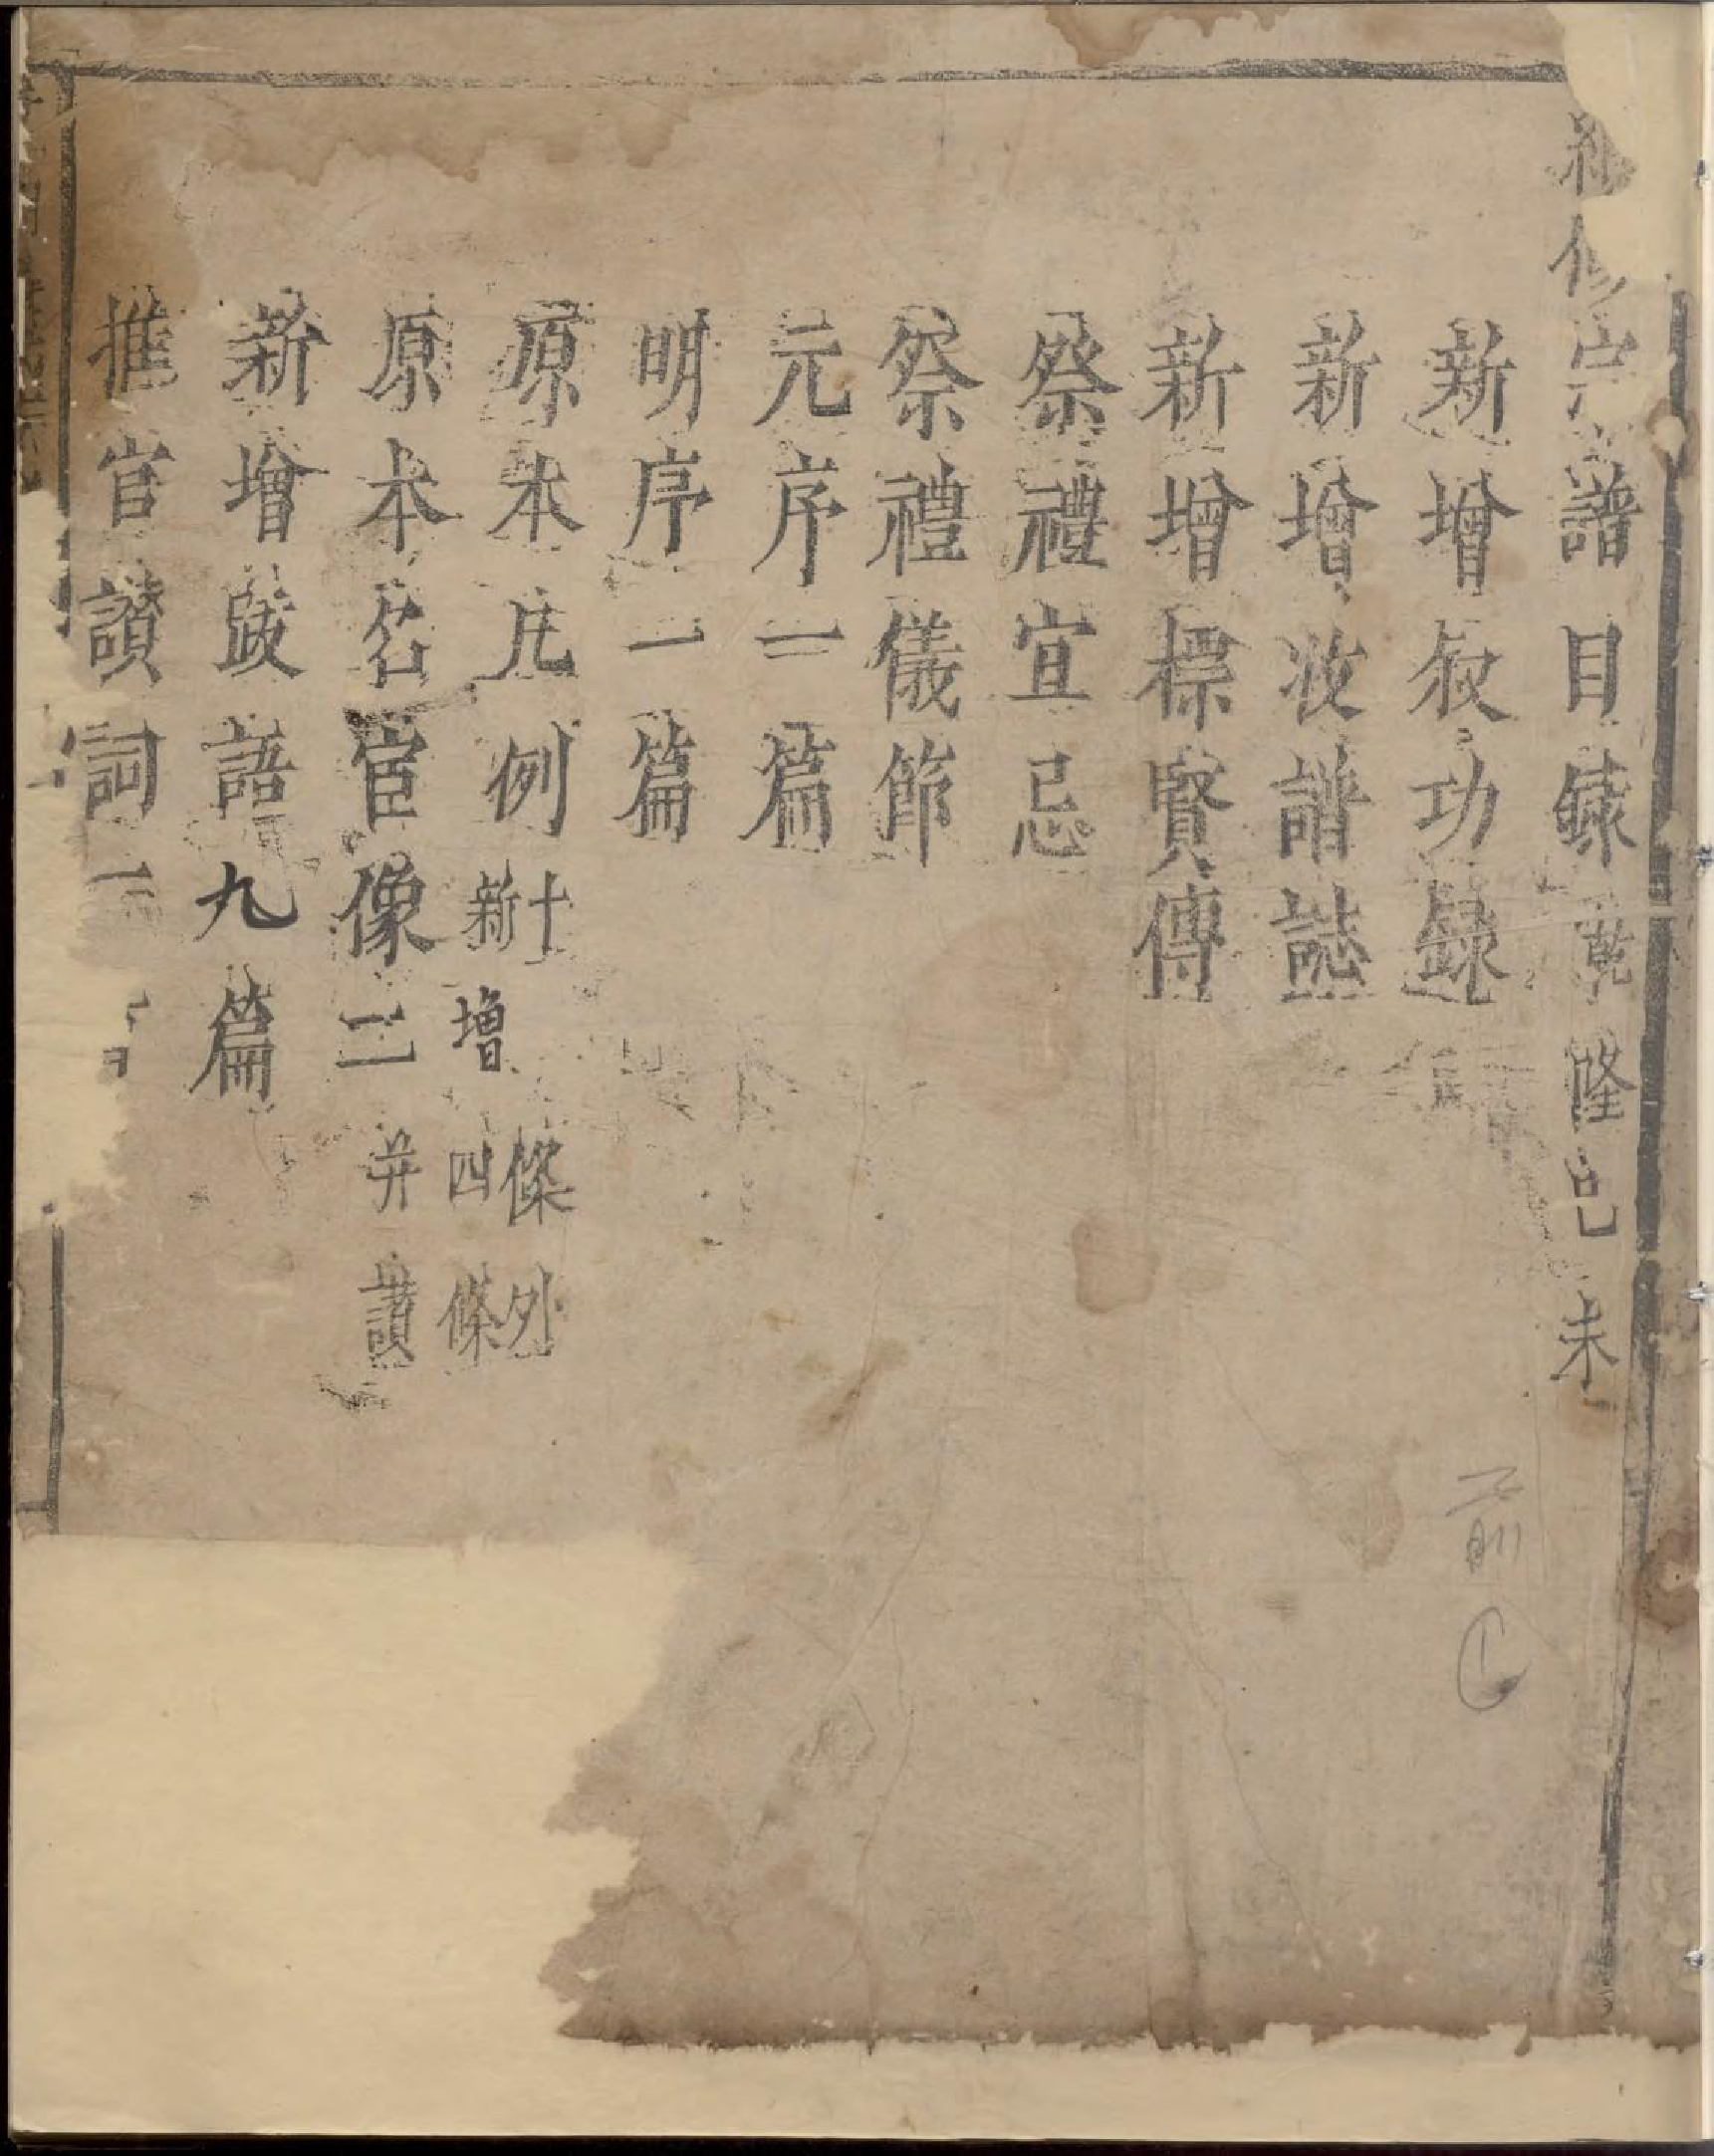 修宗譜目錄乾隆己未
新增叙功錄
新增收譜誌
新增標賢傳
祭禮宜忌
祭禮儀節
元序二篇
明序一篇
原本凡例十條外新增四條
原本名宦像二并讚
新增跋語九篇
推官讚詞二
前
1